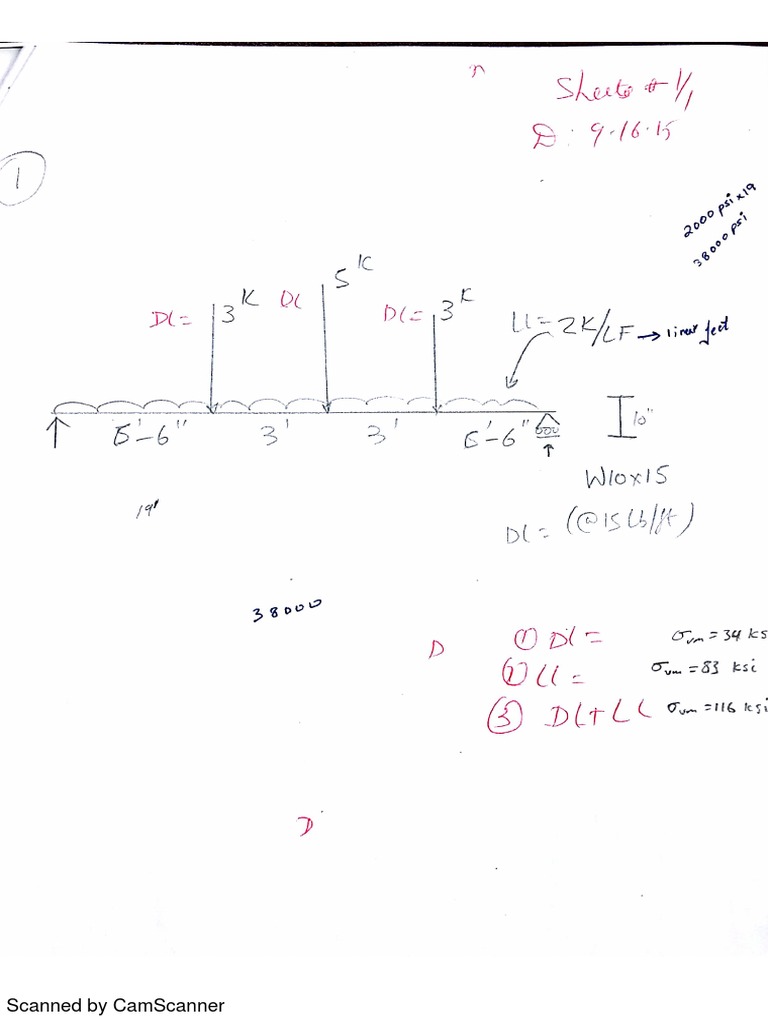 Sheets # 1/1
D: 9.16.15
1
2000 psi x 19
38000 psi
Dl= 3K Dl 5K Dl= 3K Ll= 2K/LF → linear feet
5'-6" 3' 3' 5'-6" 10"
W10x15
19'
Dl= (@15 Lb/ft)
38000
D ① Dl= σvm = 34 ks
② Ll= σvm = 83 ksi
③ Dl+LL σvm = 116 ksi
D
Scanned by CamScanner